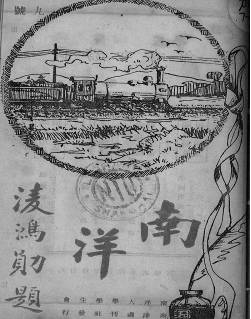 九號
南洋
淩鴻勛題
南洋大學學生會
南洋週刊社發行